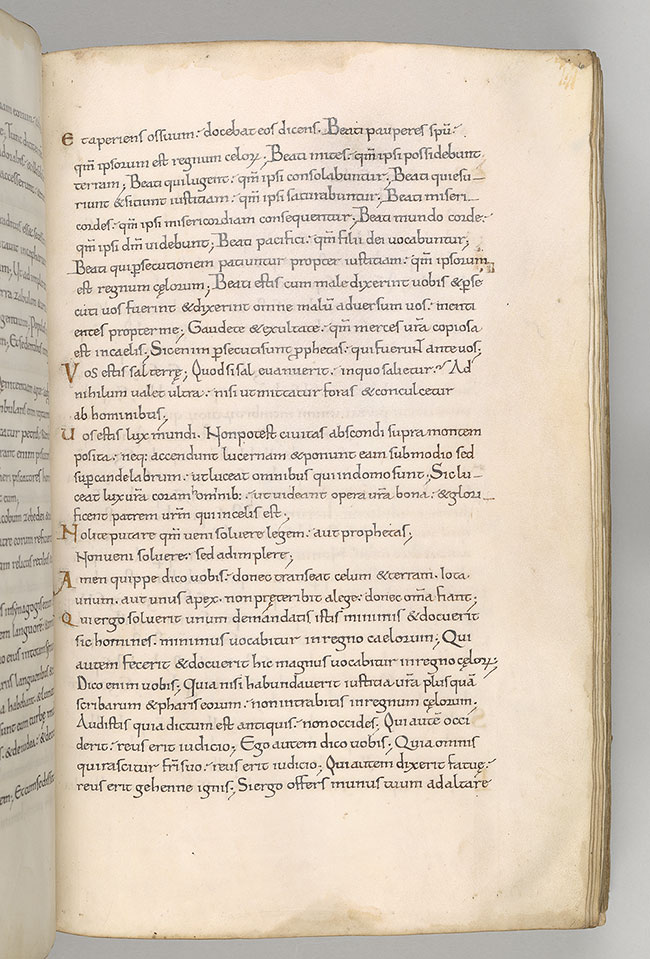 Et aperiens os suum: docebat eos dicens. Beati pauperes spū:
qm̄ ipsorum est regnum celoꝝ; Beati mites: qm̄ ipsi possidebunt
terram; Beati qui lugent: qm̄ ipsi consolabuntur; Beati qui esu-
riunt & sitiunt iustitiam: qm̄ ipsi saturabuntur; Beati miseri-
cordes: qm̄ ipsi misericordiam consequentur; Beati mundo corde:
qm̄ ipsi dm̄ uidebunt; Beati pacifici: qm̄ filii dei vocabuntur;
Beati qui ꝑsecutionem patiuntur propter iustitiam: qm̄ ipsorum
est regnum cęlorum; Beati estis cum male dixerint uobis & ꝑse
cuti uos fuerint & dixerint omne malū adversum uos: menti
entes propter me; Gaudete & exultate: qm̄ merces ur̄a copiosa
est in caelis; Sic enim ꝑsecuti sunt ꝓphetas: qui fuerunt ante uos;
Vos estis sal terrę; Quod si sal euanuerit: in quo salietur? Ad
nihilum ualet ultra: nisi ut mittatur foras & conculcetur
ab hominibus;
Uos estis lux mundi. Non potest ciuitas abscondi supra montem
posita: neq: accendunt lucernam & ponunt eam sub modio sed
suꝑ candelabrum: ut luceat omnibus qui in domo sunt; Sic lu-
ceat lux ur̄a coram hominib: ut uideant opera ur̄a bona: & glori-
ficent patrem ur̄m qui in celis est;
Nolite putare qm̄ ueni soluere legem: aut prophetas;
Non ueni soluere: sed adimplere;
Amen quippe dico uobis: donec transeat celum & terram. Iota
unum. aut unus apex. non pręteribit a lege: donec om̄a fiant;
Qui ergo soluerit unum de mandatis istis minimis & docuerit
sic homines. minimus uocabitur in regno caelorum; Qui
autem fecerit & docuerit hic magnus uocabitur in regno cęloꝝ;
Dico enim uobis; Quia nisi habundauerit iustitia ur̄a plus quā
scribarum & phariseorum: non intrabitis in regnum cęlorum;
Audistis quia dictum est antiquis: non occides; Qui autē occi
derit: reus erit iudicio; Ego autem dico uobis; Quia omnis
qui irascitur fr̄i suo: reus erit iudicio; Qui autem dixerit fatue:
reus erit gehenne ignis; Si ergo offers munus tuum ad altare